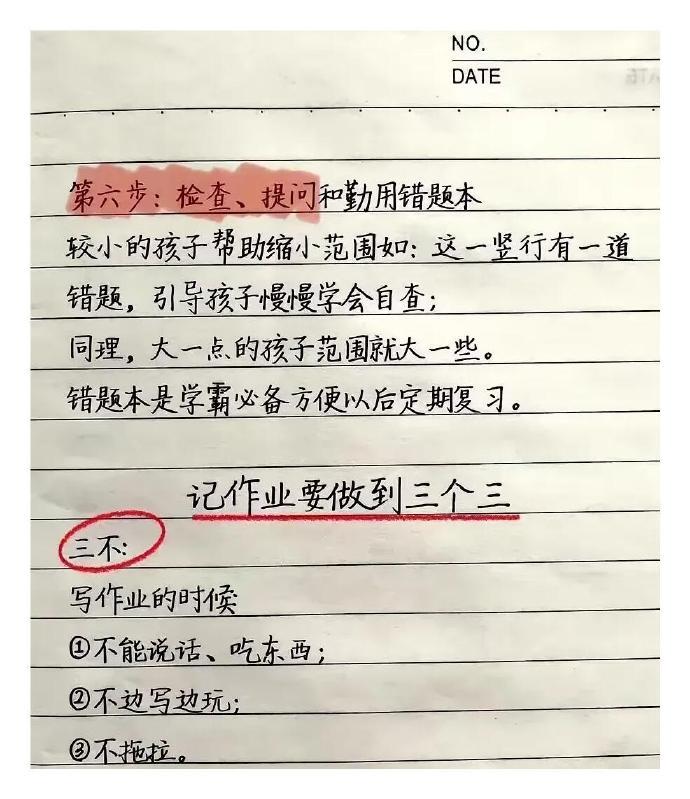 NO.
DATE
第六步：检查、提问和勤用错题本
较小的孩子帮助缩小范围如：这一竖行有一道
错题，引导孩子慢慢学会自查；
同理，大一点的孩子范围就大一些。
错题本是学霸必备方便以后定期复习。
记作业要做到三个三
三不：
写作业的时候
①不能说话、吃东西；
②不边写边玩；
③不拖拉。